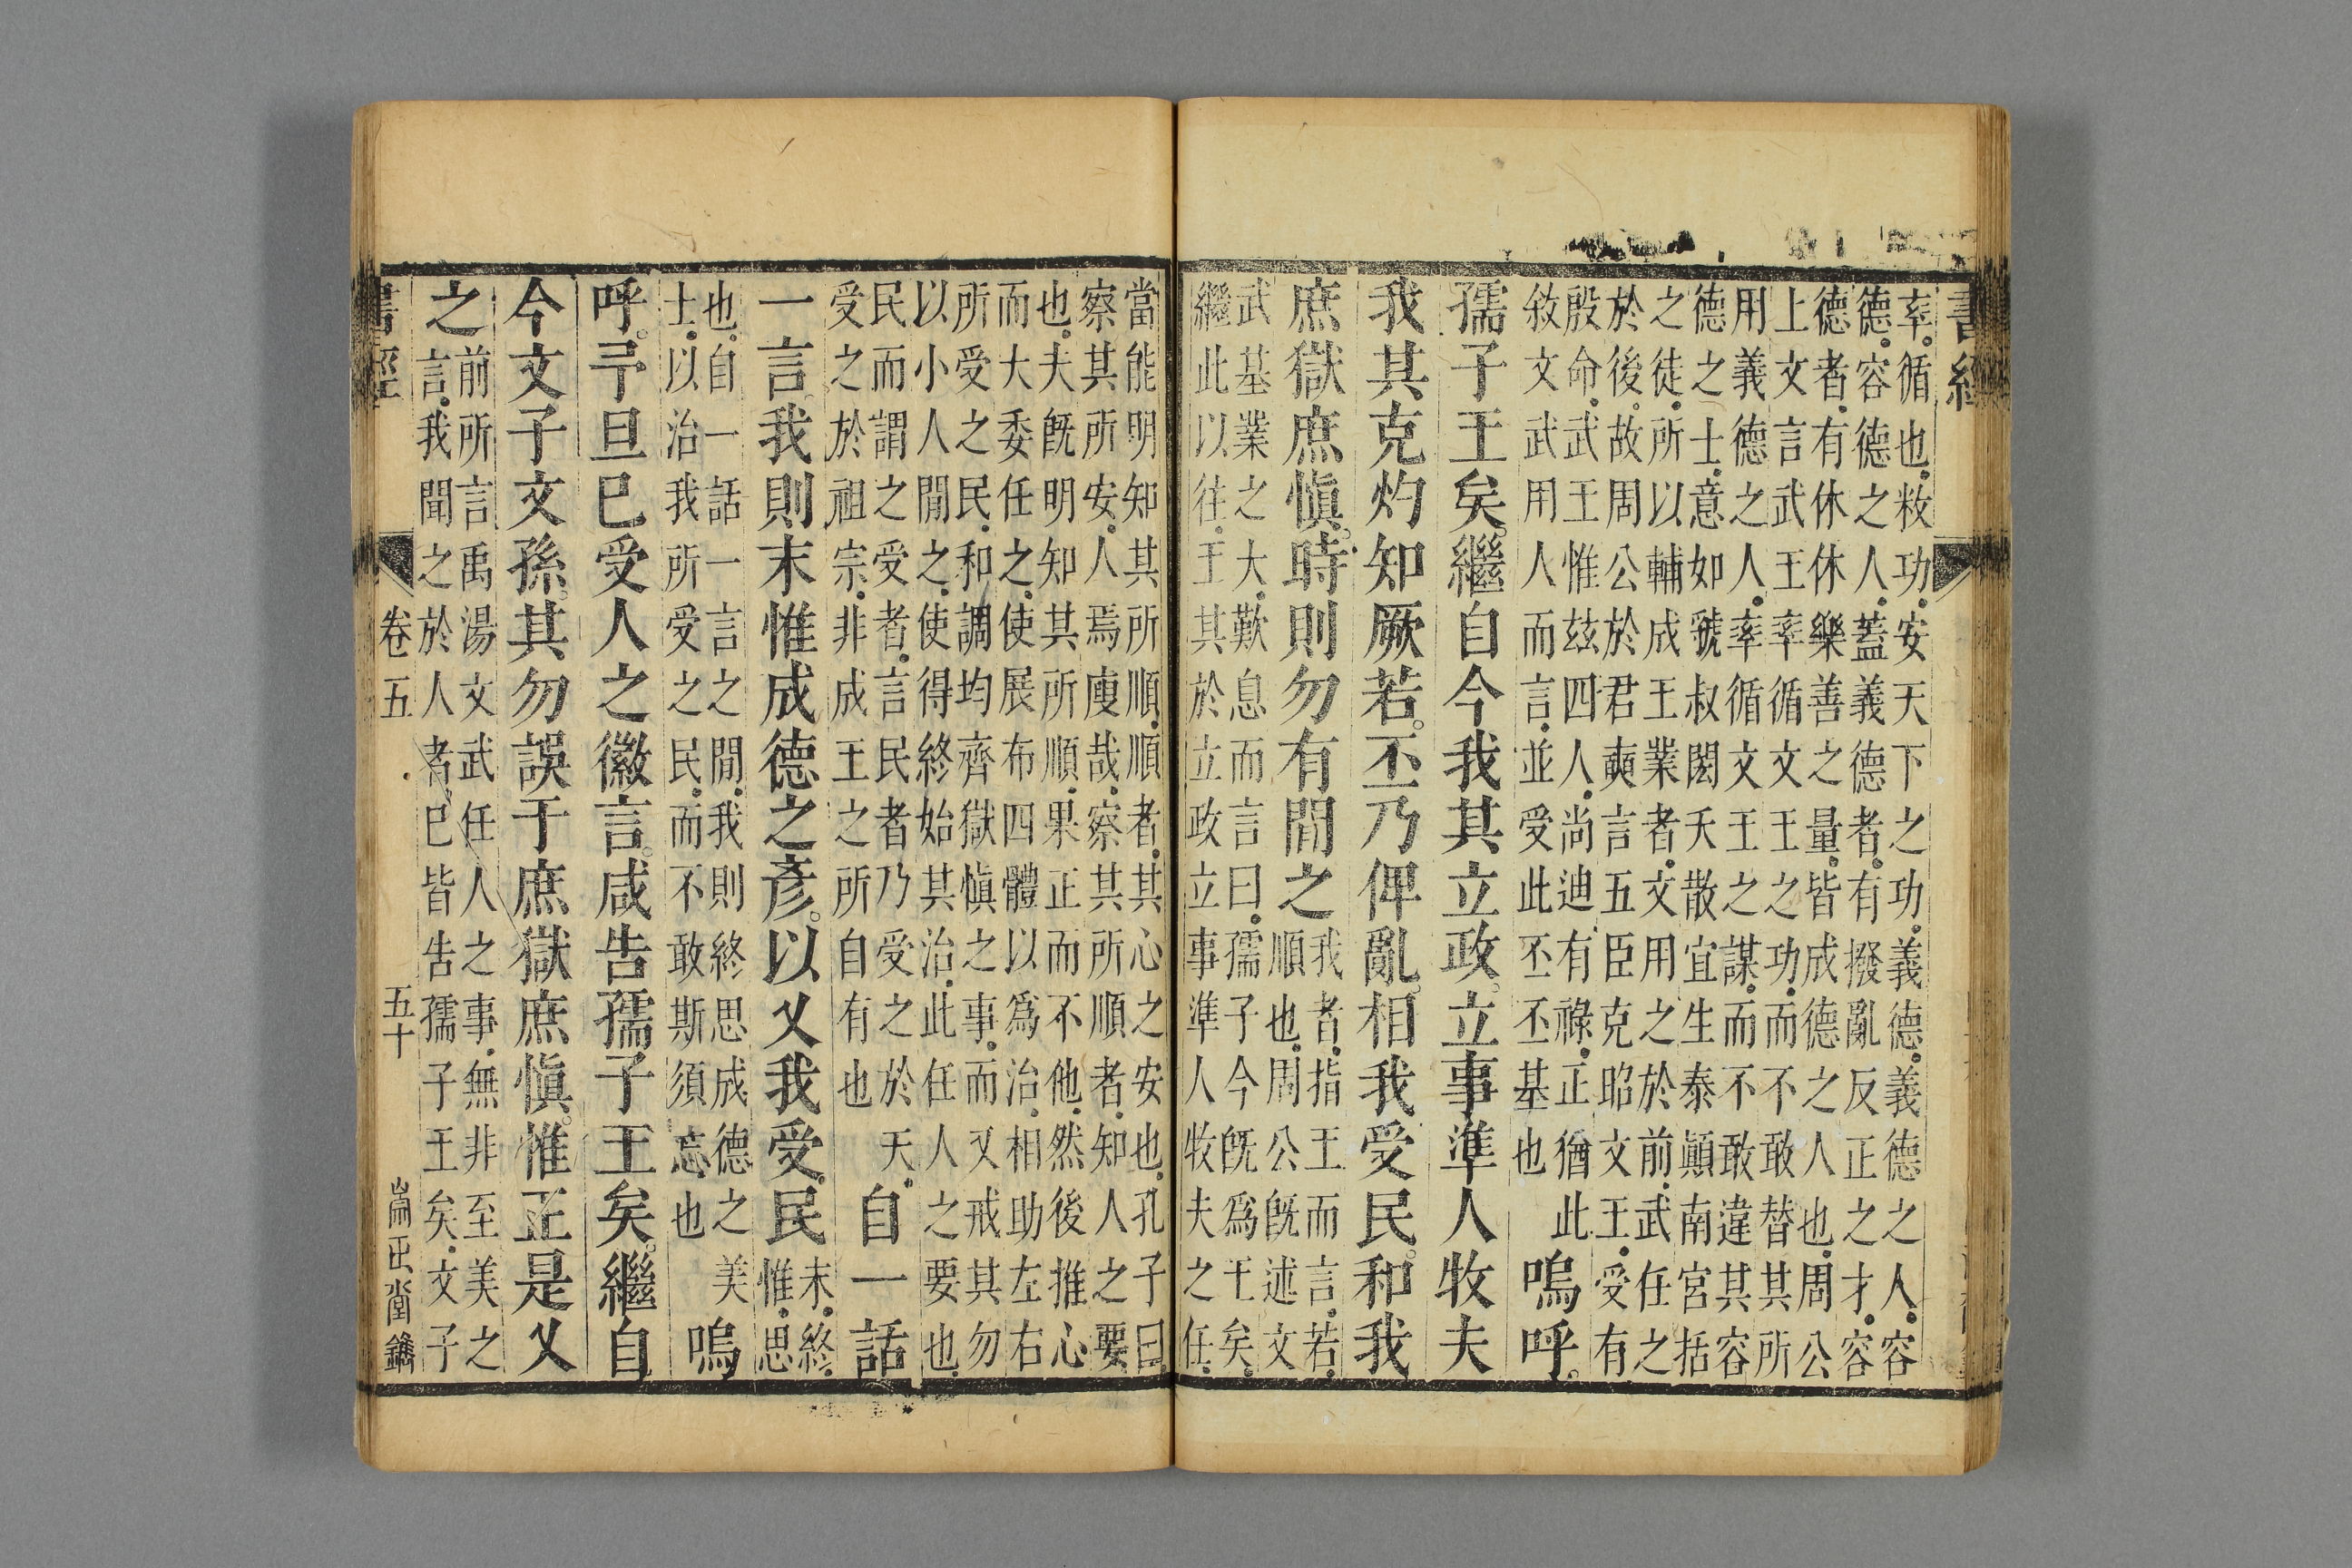 書經
率循也敉功安天下之功義德義德之人容
德容德之人蓋義德者有撥亂反正之才容
德者有休休樂善之量皆成德之人也周公
上文言武王率循文王之功而不敢替其所
用義德之人率循文王之謀而不敢違其容
德之士意如虢叔閎夭散宜生泰顛南宮括
之徒所以輔成王業者文用之於前武任之
於後故周公於君奭言五臣克昭文王受有
殷命武王惟兹四人尚迪有祿正猶此
敘文武用人而言並受此丕丕基也
嗚呼
孺子王矣繼自今我其立政立事準人牧夫
我其克灼知厥若丕乃俾亂相我受民和我
庶獄庶愼時則勿有間之
我者指王而言若
順也周公既述文
武基業之大歎息而言曰孺子今既爲王矣
繼此以往王其於立政立事準人牧夫之任
當能明知其所順順者其心之安也孔子曰
察其所安人焉廋哉察其所順者知人之要
也夫既明知其所順果正而不他然後推心
而大委任之使展布四體以爲治相助左右
所受之民和調均齊獄愼之事而又戒其勿
以小人閒之使得終始其治此任人之要也
民而謂之受者言民者乃受之於天
受之於祖宗非成王之所自有也
自一話
一言我則末惟成德之彥以乂我受民
末終
惟思
也自一話一言之間我則終思成德之美
士以治我所受之民而不敢斯須忘也
嗚
呼予旦已受人之徽言咸告孺子王矣繼自
今文子文孫其勿誤于庶獄庶愼惟正是乂
之
前所言禹湯文武任人之事無非至美之
言我聞之於人者已皆告孺子王矣文子
書經
卷五
五十
正堂鐫